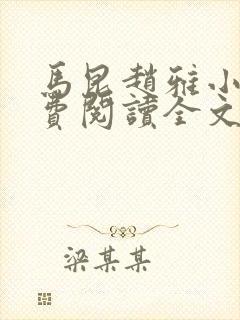 馬昆趙雅小
費閱讀全文
梁某某